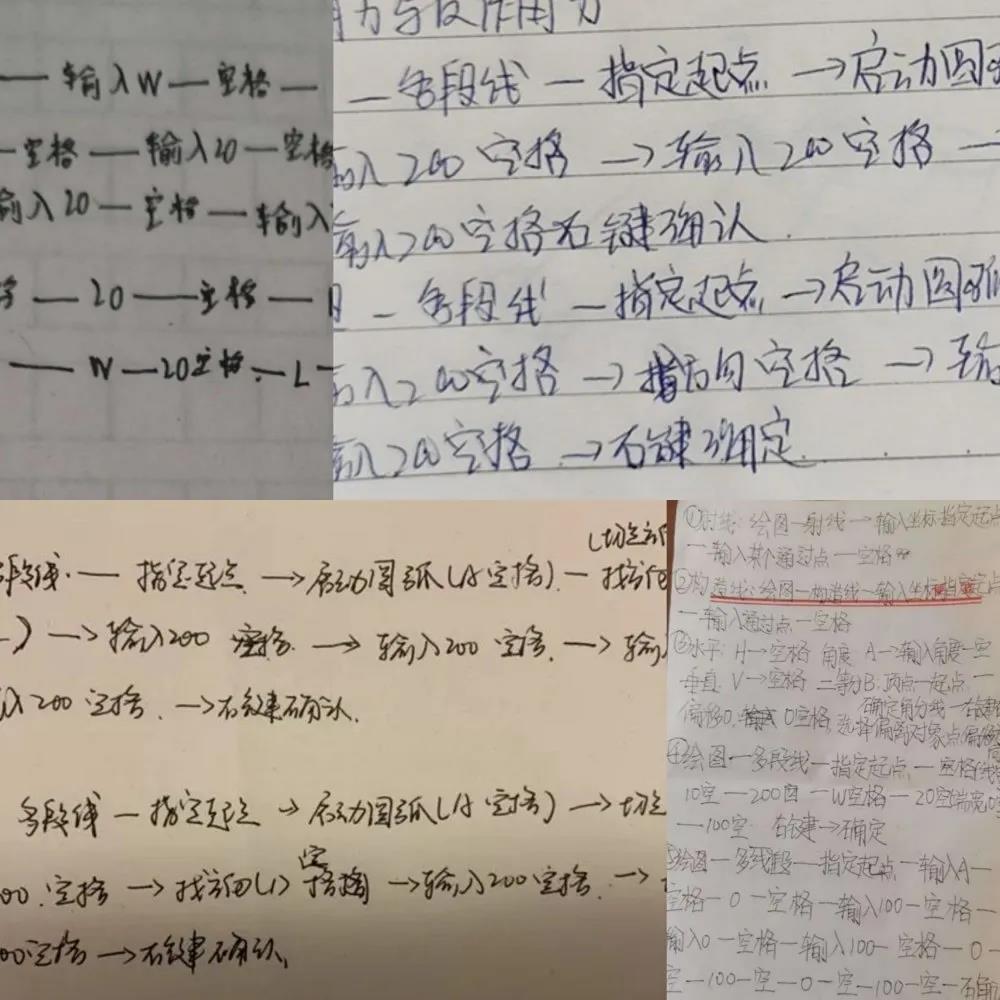 — 输入W — 空格 —
— 空格 — 输入20 — 空格
输入20 — 空格 — 输入
— 20 — 空格 —
— W — 20空格 — L —
力与反作用力
— 多段线 — 指定起点 → 启动圆弧
输入200 空格 → 输入200空格 —
输入200空格右键确认.
— 多段线 — 指定起点 → 启动圆弧
输入200空格 → 找方向空格 → 输
输入200空格 → 右键确定.
(切点方
多段线. — 指定起点 → 启动圆弧(A空格). — 找方向
) → 输入200 空格 → 输入200 空格. → 输入
入200空格. → 右键确认.
多段线 — 指定起点 → 启动圆弧(A空格) → 切点
00.空格 → 找方向(L) 空格 → 输入200空格. →
00空格 → 右键确认,
①射线: 绘图—射线→输入坐标指定起点
—输入某个通过点—空格
②构造线: 绘图—构造线—输入坐标指定起点
—输入通过点—空格
③水平: H→空格 角度: A→输入角度—空
垂直: V→空格 二等分B.顶点—起点.—
确定角分线—右键
偏移O. 输入O空格, 选择偏离对象点偏移
④绘图—多段线—指定起点.—空格
10空—200回—W空格—20空端宽0
—100空. 右键→确定
⑤绘图—多线段—指定起点—输入A—
空格—0—空格—输入100—空格—
输入0—空格—输入100—空格—0—
空—100—空—0—空—100—空—右确